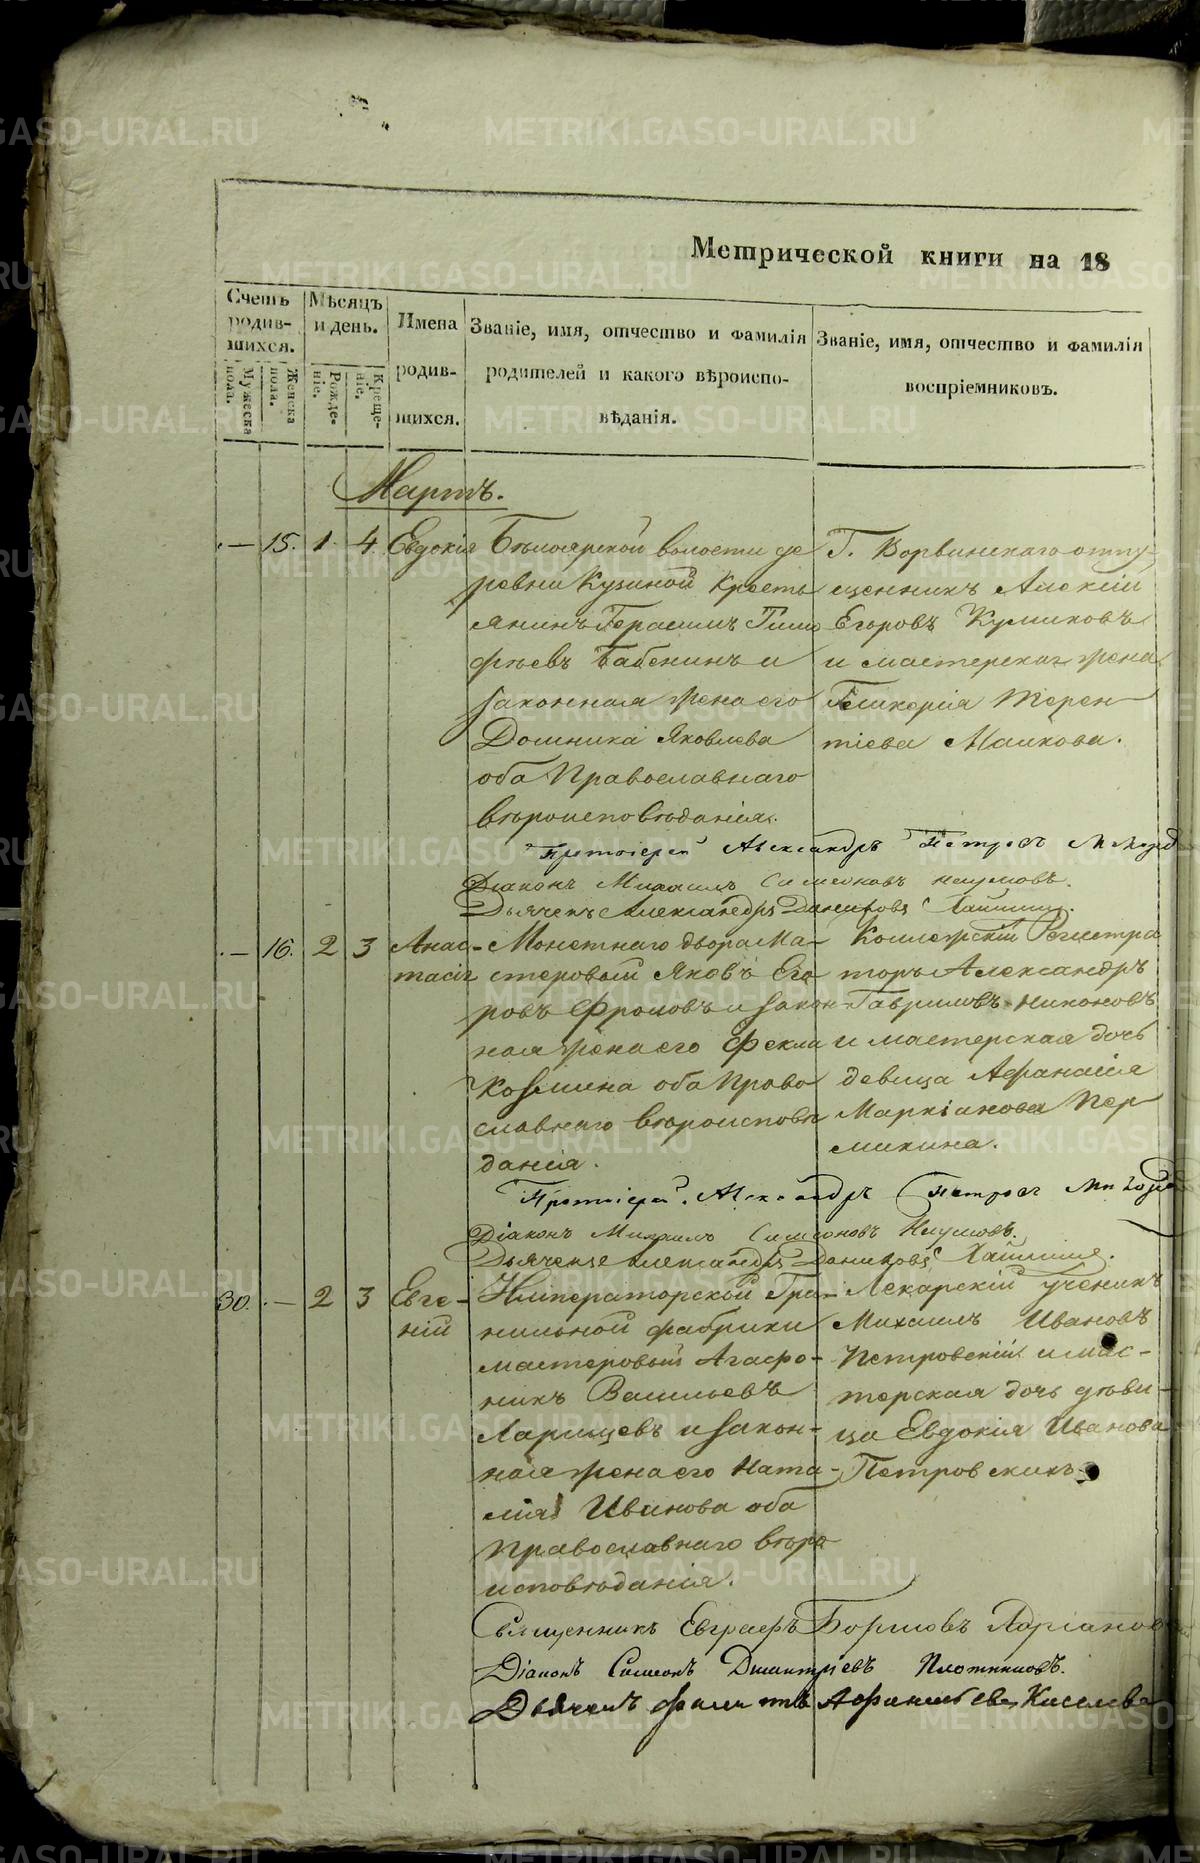 Метрической книги на 18
Счетъ родив-шихся.
Мужеска пола.
Женска пола.
Мѣсяцъ и день.
Рожде-ніе.
Креще-ніе.
Имена родив-шихся.
Званіе, имя, отчество и фамилія родителей и какого вѣроиспо-вѣданія.
Званіе, имя, отчество и фамилія воспріемниковъ.
Мартъ.
— 15. 1 4 Евдокія
Бѣлоярской волости де
ревни Кузиной Кресть
янинъ Герасимъ Тимо
фѣевъ Бабкинъ и
законная жена его
Домника Яковлева
оба Православнаго
вѣроисповѣданія.
Г.
отпу-
щенникъ Алексій
Егоровъ Куликовъ
и мастерская жена
Гликерія Терен
тіева Малкова.
Протоіерей Александръ Петровъ
Діаконъ Михаилъ Симеоновъ Наумовъ.
Дьячекъ Александръ Даниловъ
— 16. 2 3 Анас-
тасія
Монетнаго двора Ма-
стеровый Яковъ Его
ровъ Фроловъ и закон-
ная жена его Фекла
Козмина оба Право
славнаго вѣроисповѣ
данія.
Коллежскій Регистра
торъ Александръ
Гавриловъ Никоновъ
и мастерская дочь
девица Афанасія
Маркіанова Пер
микина.
Протоіерей Александръ Петровъ
Діаконъ Михаилъ Симеоновъ Наумовъ.
Дьячекъ Александръ Даниловъ
30. — 2 3 Евге-
ній
Императорской Гра-
нильной фабрики
мастеровый Агафо-
никъ Васильевъ
Ларищевъ и закон-
ная жена его Ната-
лія Иванова оба
Православнаго вѣро
исповѣданія.
Лекарскій ученикъ
Михаилъ Ивановъ
Петровскій и мас-
терская дочь дѣви-
ца Евдокія Иванова
Петровскихъ
Священникъ Евграфъ Борисовъ Адріановъ
Діаконъ Симеонъ Димитріевъ Плотниковъ.
Дьячекъ Филиппъ Афанасьевъ Киселевъ
METRIKI.GASO-URAL.RU